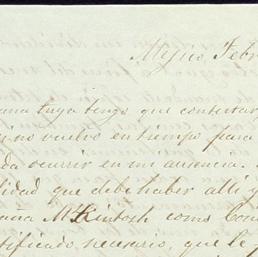 Mejico, Febr
una tuya tengo que contestar
i no vuelvo en tiempo para
da ocurrir en mi ausencia.
lidad que debe haber alli y
aña McKintosh como Con
tificado necesario, que le